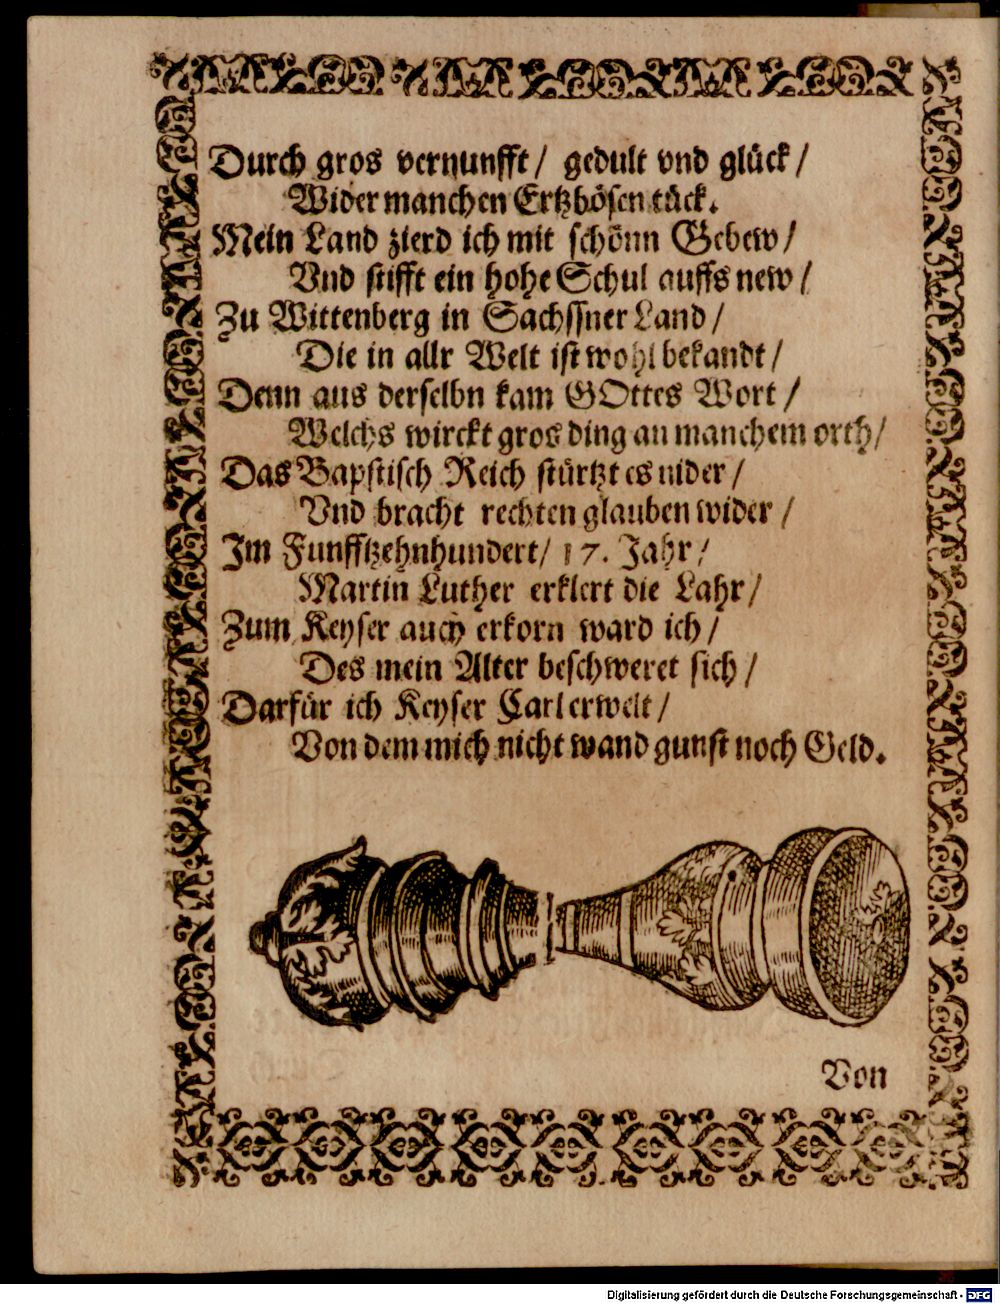 Durch gros vernunfft/ gedult vnd glück/
Wider manchen Ertzbösen tück.
Mein Land zierd ich mit schönn Gebew/
Vnd stifft ein hohe Schul auffs new/
Zu Wittenberg in Sachssner Land/
Die in allr Welt ist wohl bekandt/
Denn aus derselbn kam GOttes Wort/
Welchs wirckt gros ding an manchem orth/
Das Bapstisch Reich stürtzt es nider/
Vnd bracht rechten glauben wider/
Im Funfftzehnhundert/ 17. Jahr/
Martin Luther erklert die Lahr/
Zum Keyser auch erkorn ward ich/
Des mein Alter beschweret sich/
Darfür ich Keyser Carl erwelt/
Von dem mich nicht wand gunst noch Geld.
Von
Digitalisierung gefördert durch die Deutsche Forschungsgemeinschaft - DFG